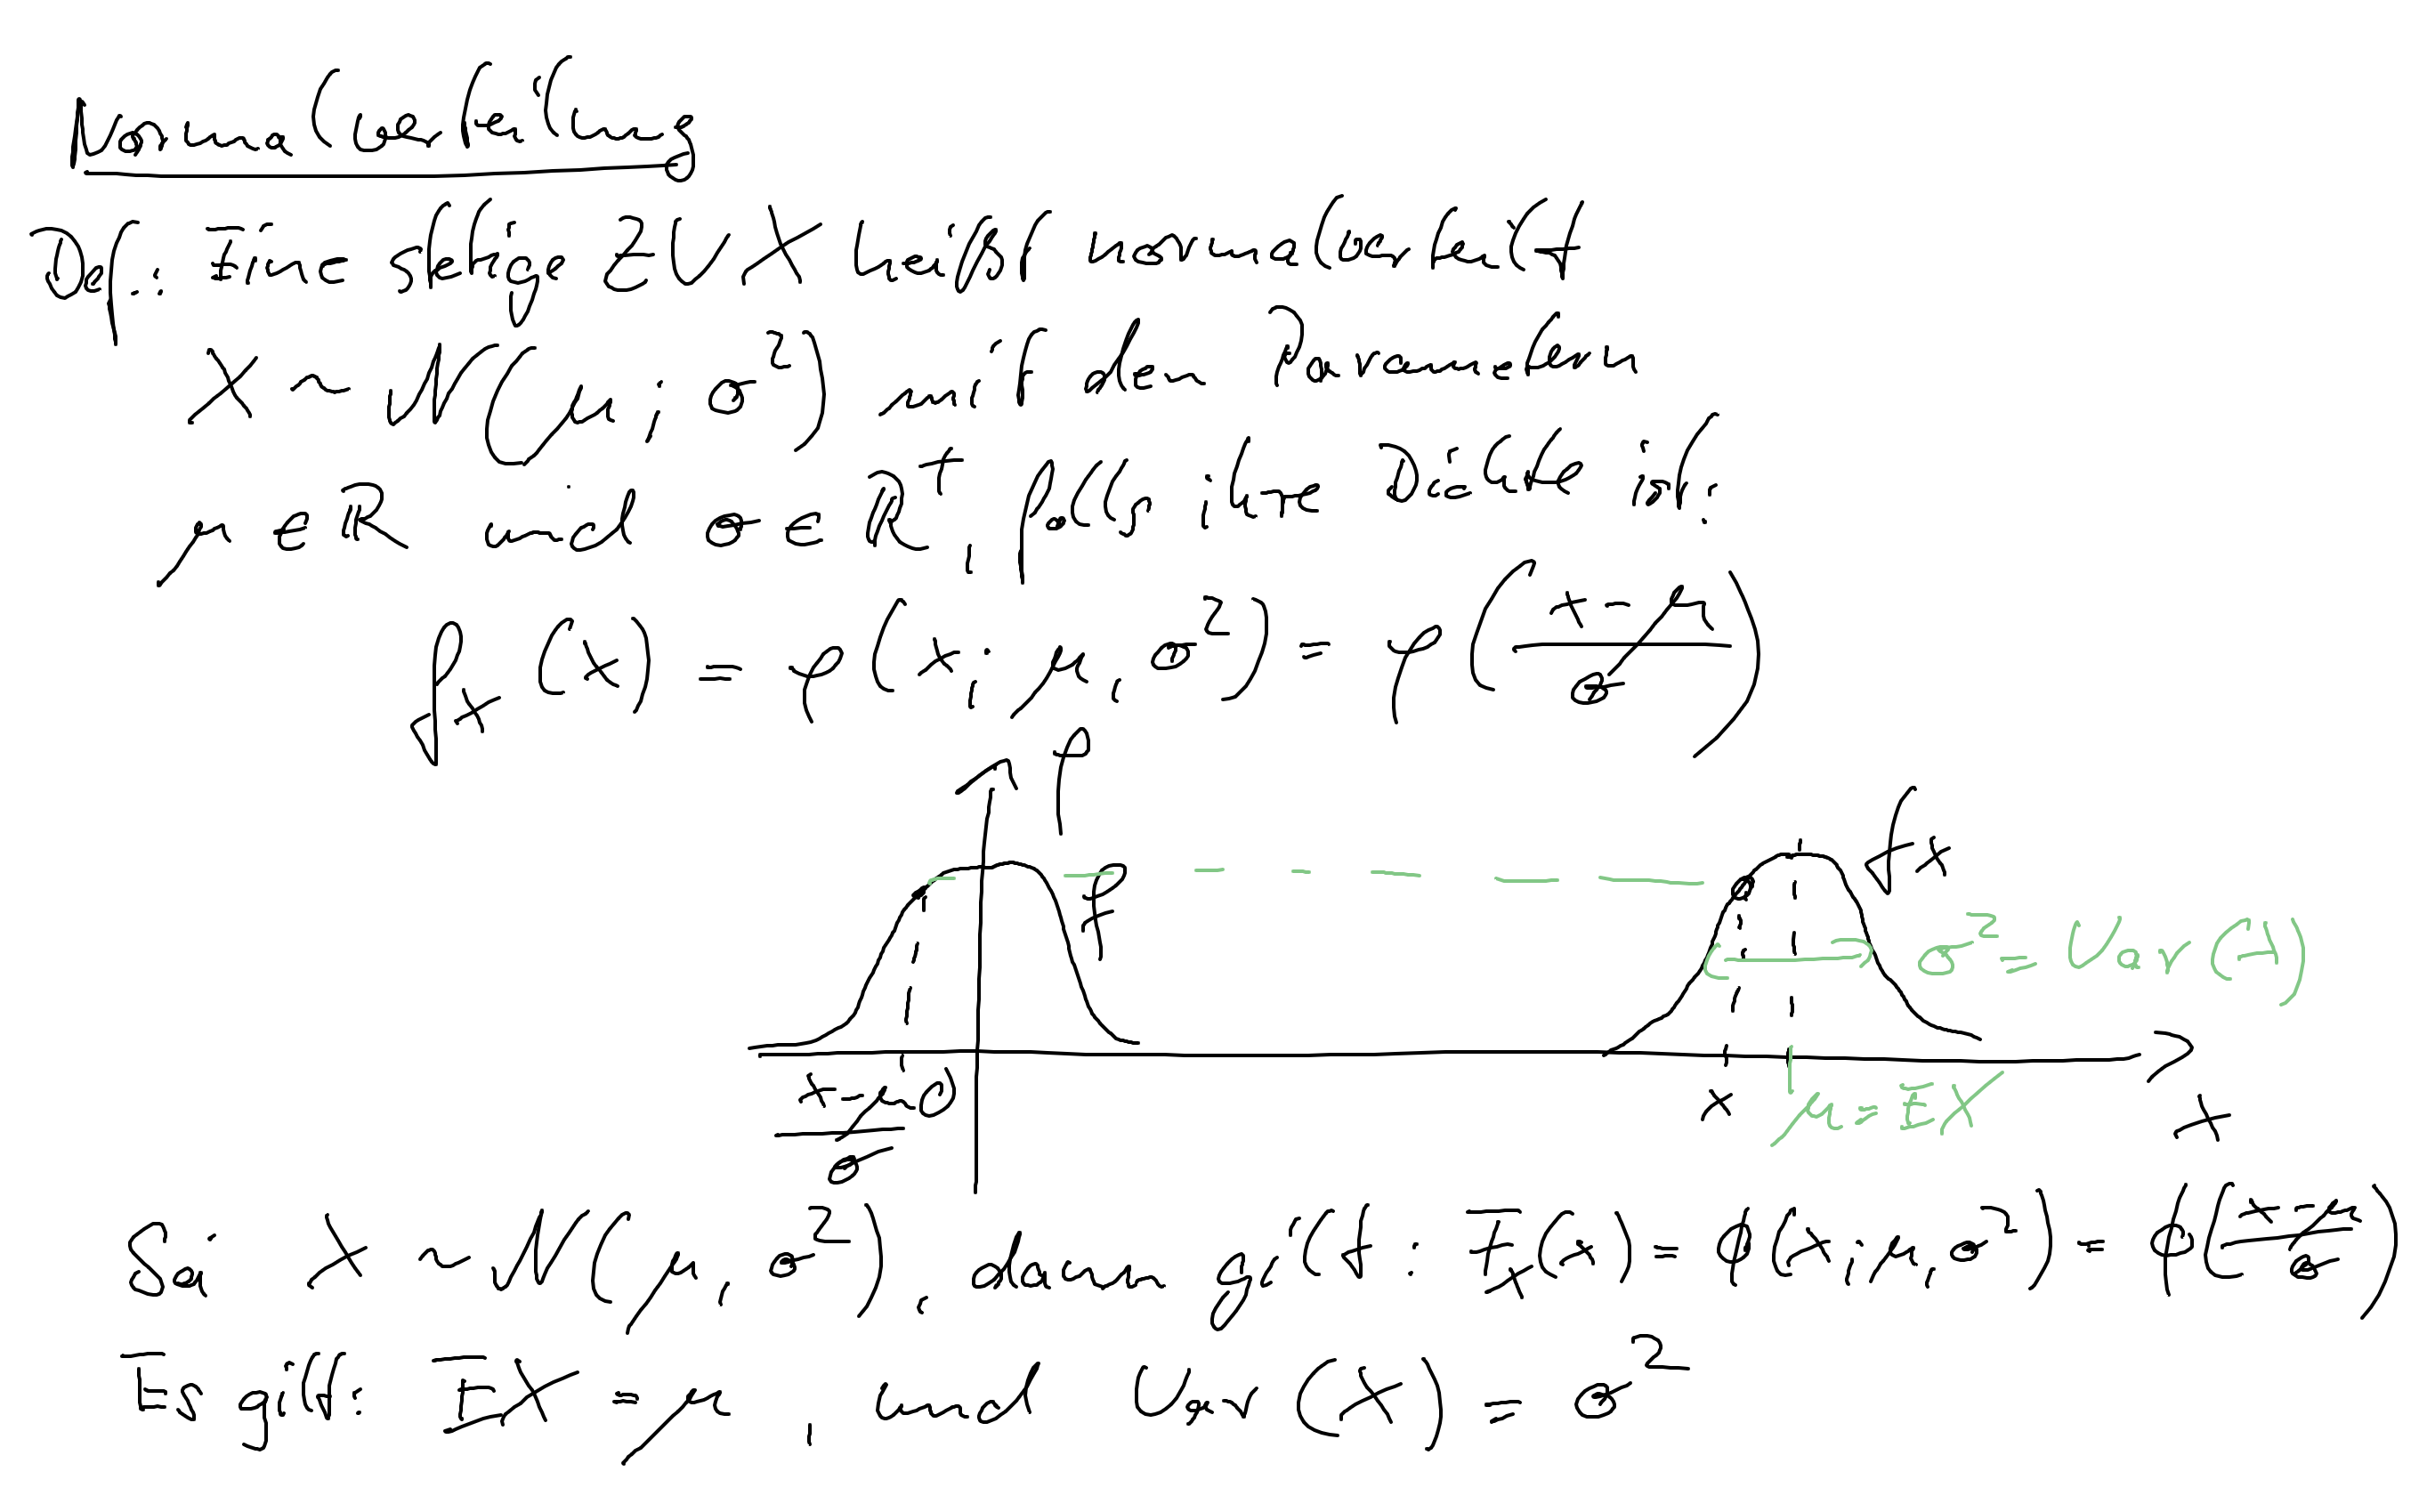 Normalverteilung
Def.: Eine sttige ZV X heißt normalverteilt
X ~ N(μ; σ²) mit den Parametern
μ ∈ ℝ und σ ∈ ℝ⁺, falls ihre Dichte ist:
f_X (x) = φ(x; μ, σ²) = φ((x-μ)/σ)
φ
f_X
φ
σ² = Var(X)
(x-μ)/σ 0 x μ = EX x
Sei X ~ N(μ, σ²), dann gilt: F_X(x) = ϕ(x; μ, σ²) = ϕ((x-μ)/σ)
Es gilt: EX = μ, und Var(X) = σ²